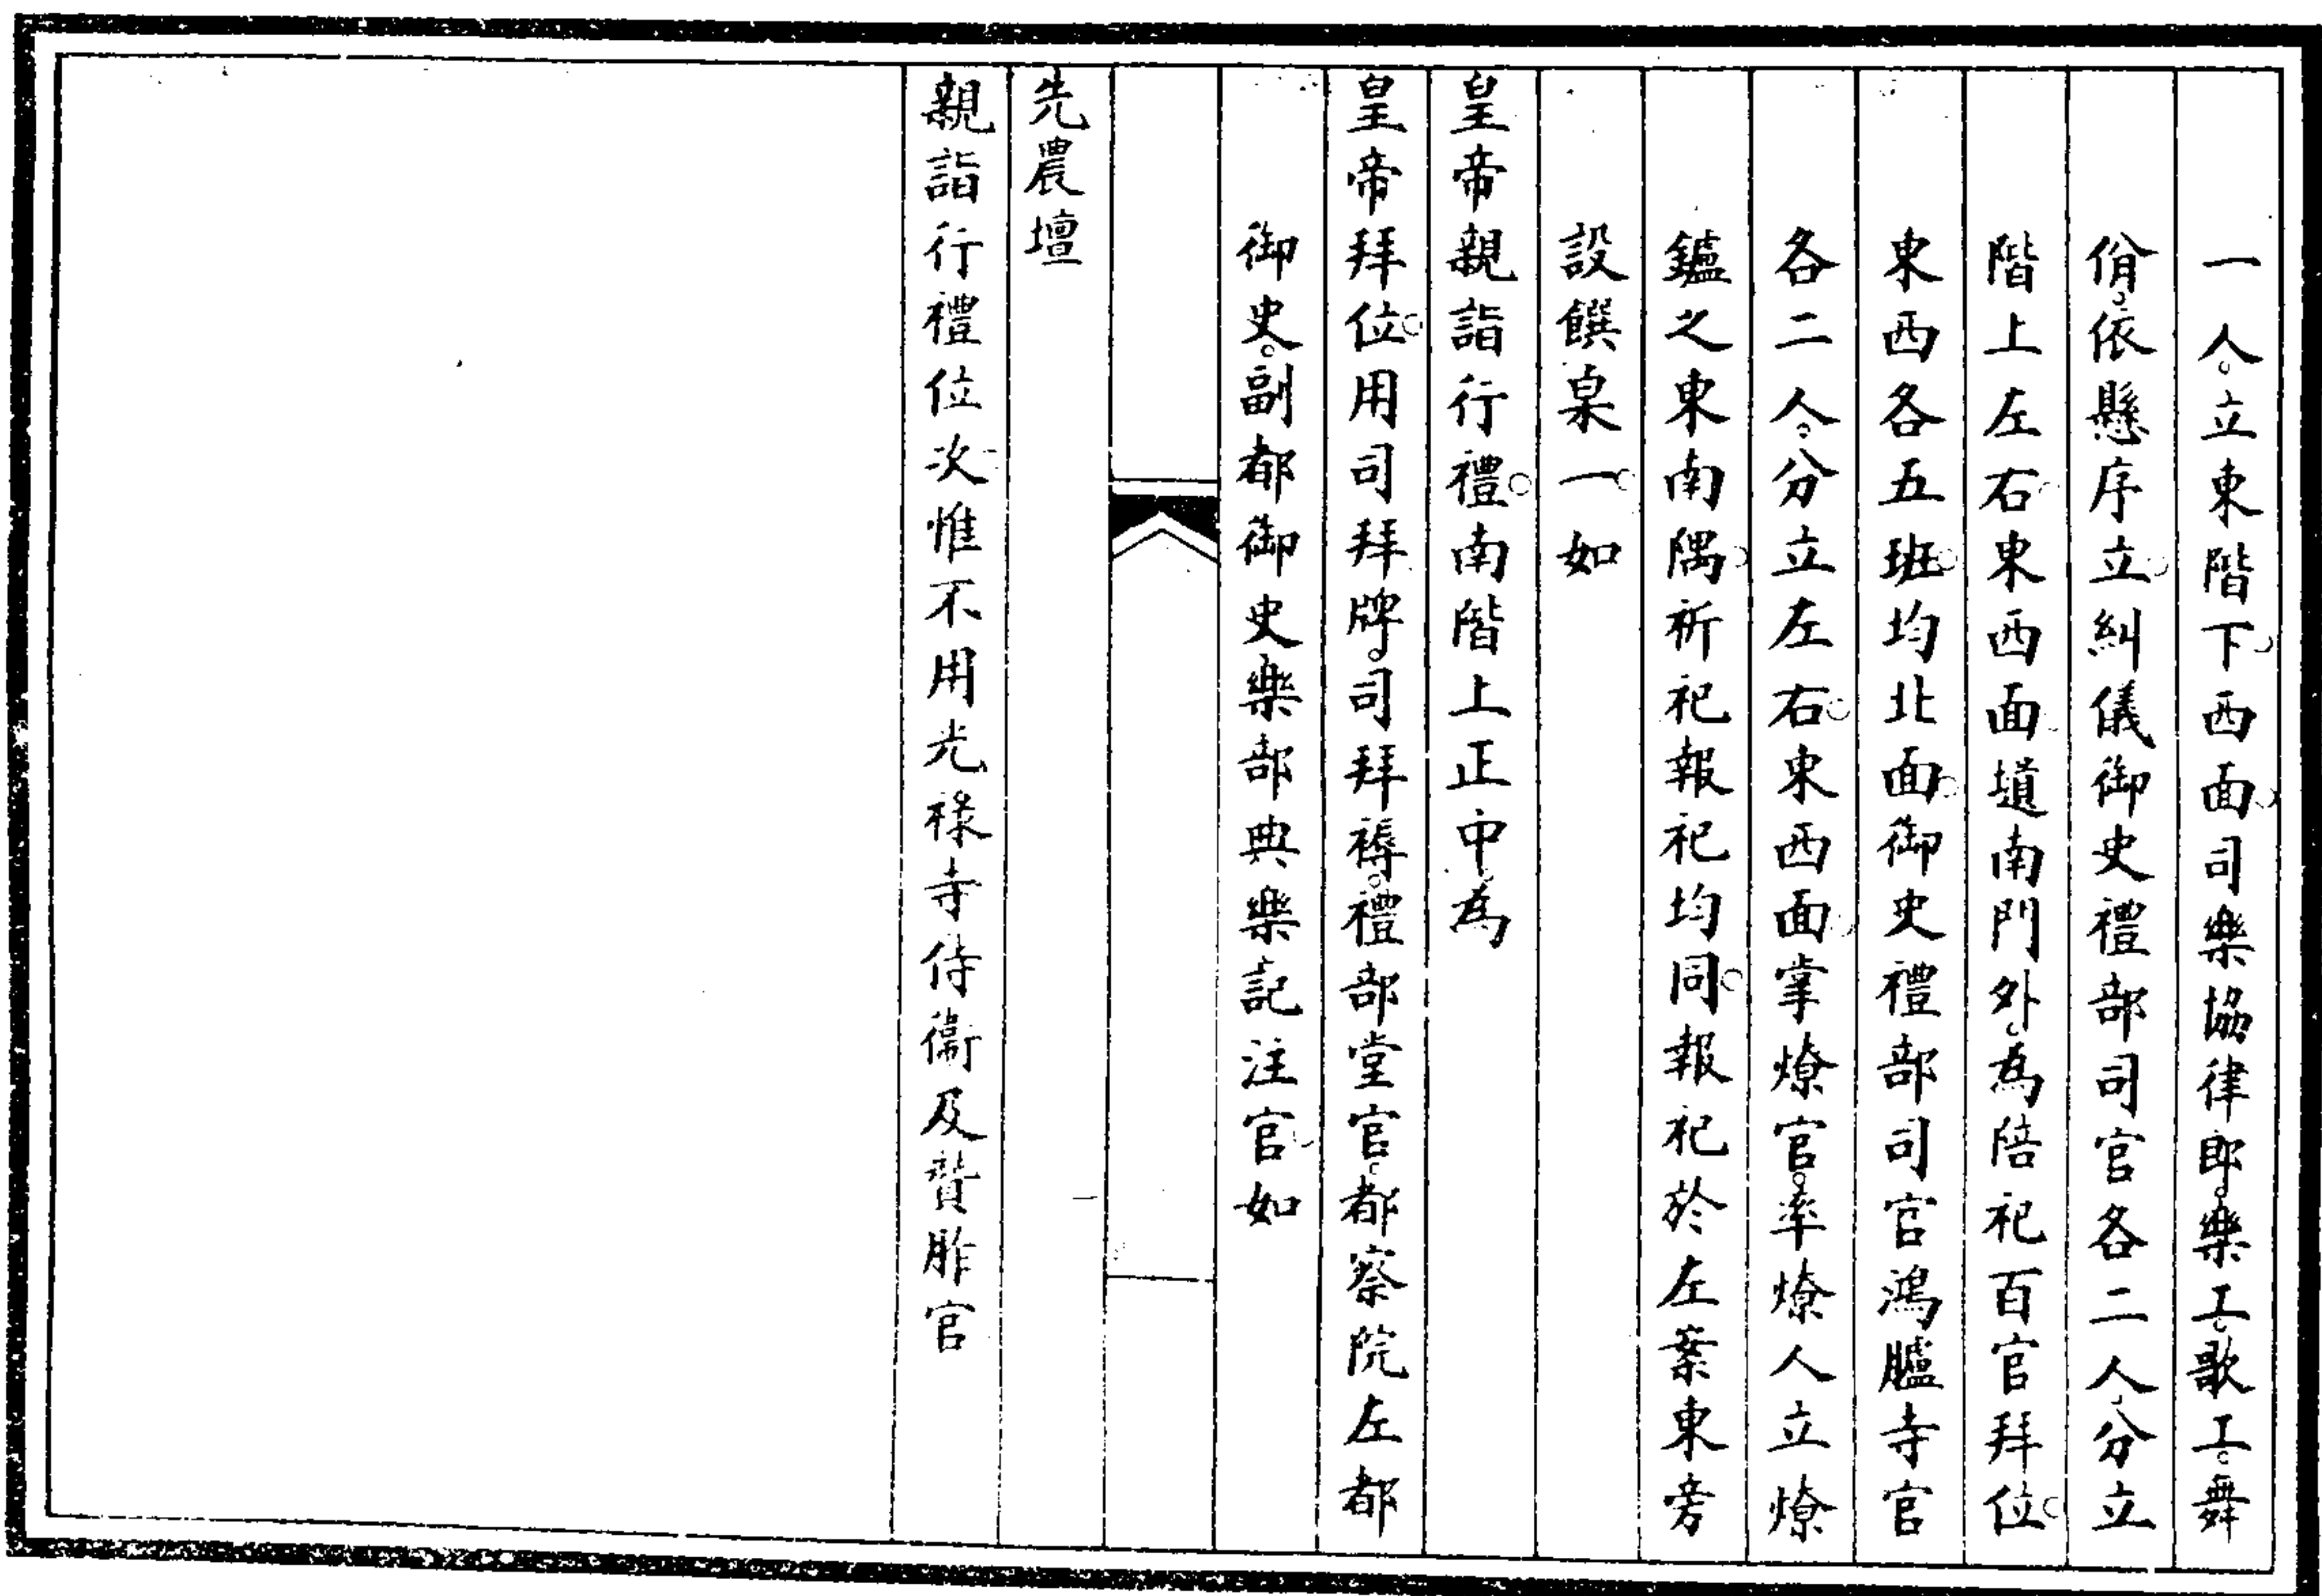 一人。立東階下。西面。司樂協律郎。樂工。歌工。舞
佾。依懸序立。糾儀御史禮部司官各二人。分立
階上左右。東西面。壝南門外。為陪祀百官拜位。
東西各五班。均北面。御史禮部司官鴻臚寺官
各二人。分立左右。東西面。掌燎官。率燎人立燎
鑪之東南隅。祈祀報祀均同。報祀於左案東旁
設饌桌一。如
皇帝親詣行禮。南階上正中。為
皇帝拜位。用司拜牌。司拜褥。禮部堂官。都察院左都
御史。副都御史樂部典樂記注官。如
先農壇
親詣行禮位次。惟不用光祿寺侍衞及贊胙官